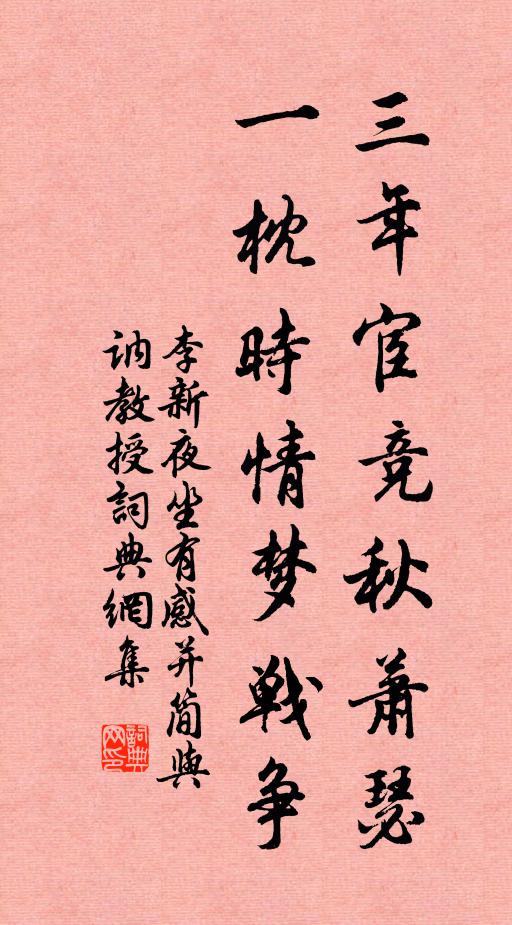 三年宦竞秋萧瑟
一枕時情梦戦争
李新夜坐有感并简與
讷教授詞典網集
詞典网印